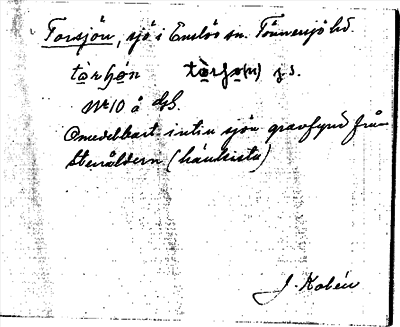 Torsjön, sjö i Enslöv sn. Tönnersjö hd.
tòrhǫ́n tòrhǫ(n) gs.
Nr 10 å GS.
Omedelbart intill sjön gravfynd från
Stenåldern (hällkista)
J. Kalén